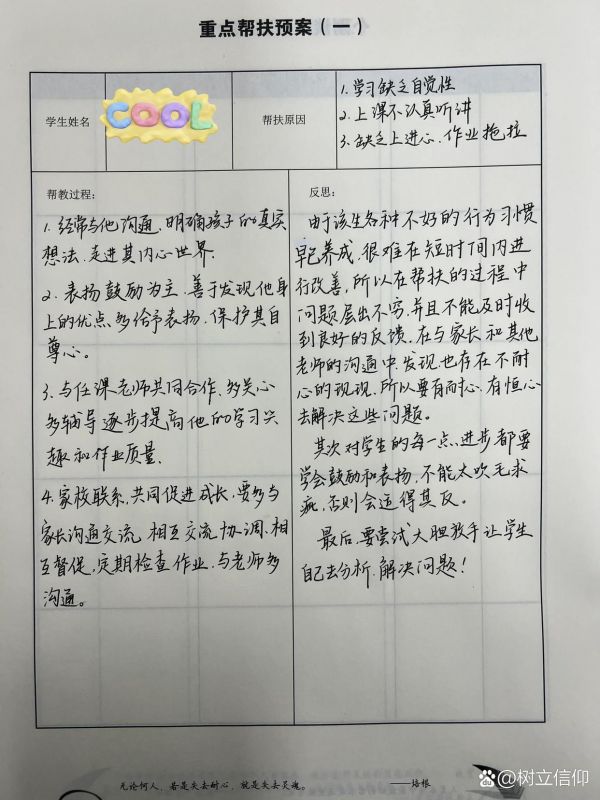 重点帮扶预案（一）
学生姓名
COOL
帮扶原因
1.学习缺乏自觉性
2.上课不认真听讲
3.缺乏上进心、作业拖拉
帮教过程:
1.经常与他沟通,明确孩子的真实
想法.走进其内心世界.
2.表扬鼓励为主.善于发现他身
上的优点多给予表扬.保护其自
尊心。
3.与任课老师共同合作.多关心
多辅导逐步提高他的学习兴
趣和作业质量.
4.家校联系,共同促进成长,要多与
家长沟通交流.相互交流.协调.相
互督促,定期检查作业.与老师多
沟通。
反思:
由于该生各种不好的行为习惯
早已养成,很难在短时间内进
行改善,所以在帮扶的过程中
问题层出不穷.并且不能及时收
到良好的反馈.在与家长和其他
老师的沟通中.发现也存在不耐
心的现现.所以要有耐心.有恒心
去解决这些问题。
其次对学生的每一点进步都要
学会鼓励和表扬,不能太吹毛求
疵,否则会适得其反。
最后.要尝试大胆放手让学生
自己去分析.解决问题!
无论何人，若是失去耐心，就是失去灵魂。
——培根
@树立信仰